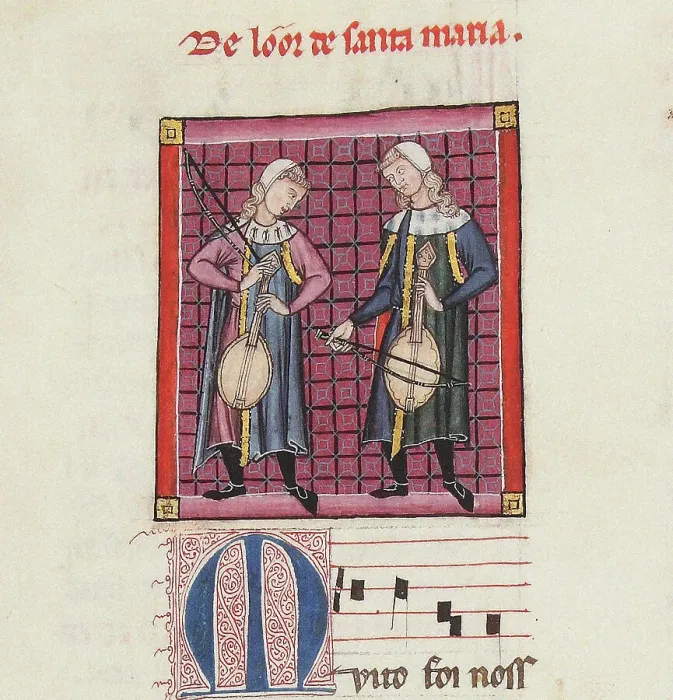 De lóor de santa maria.
Muito foi noss